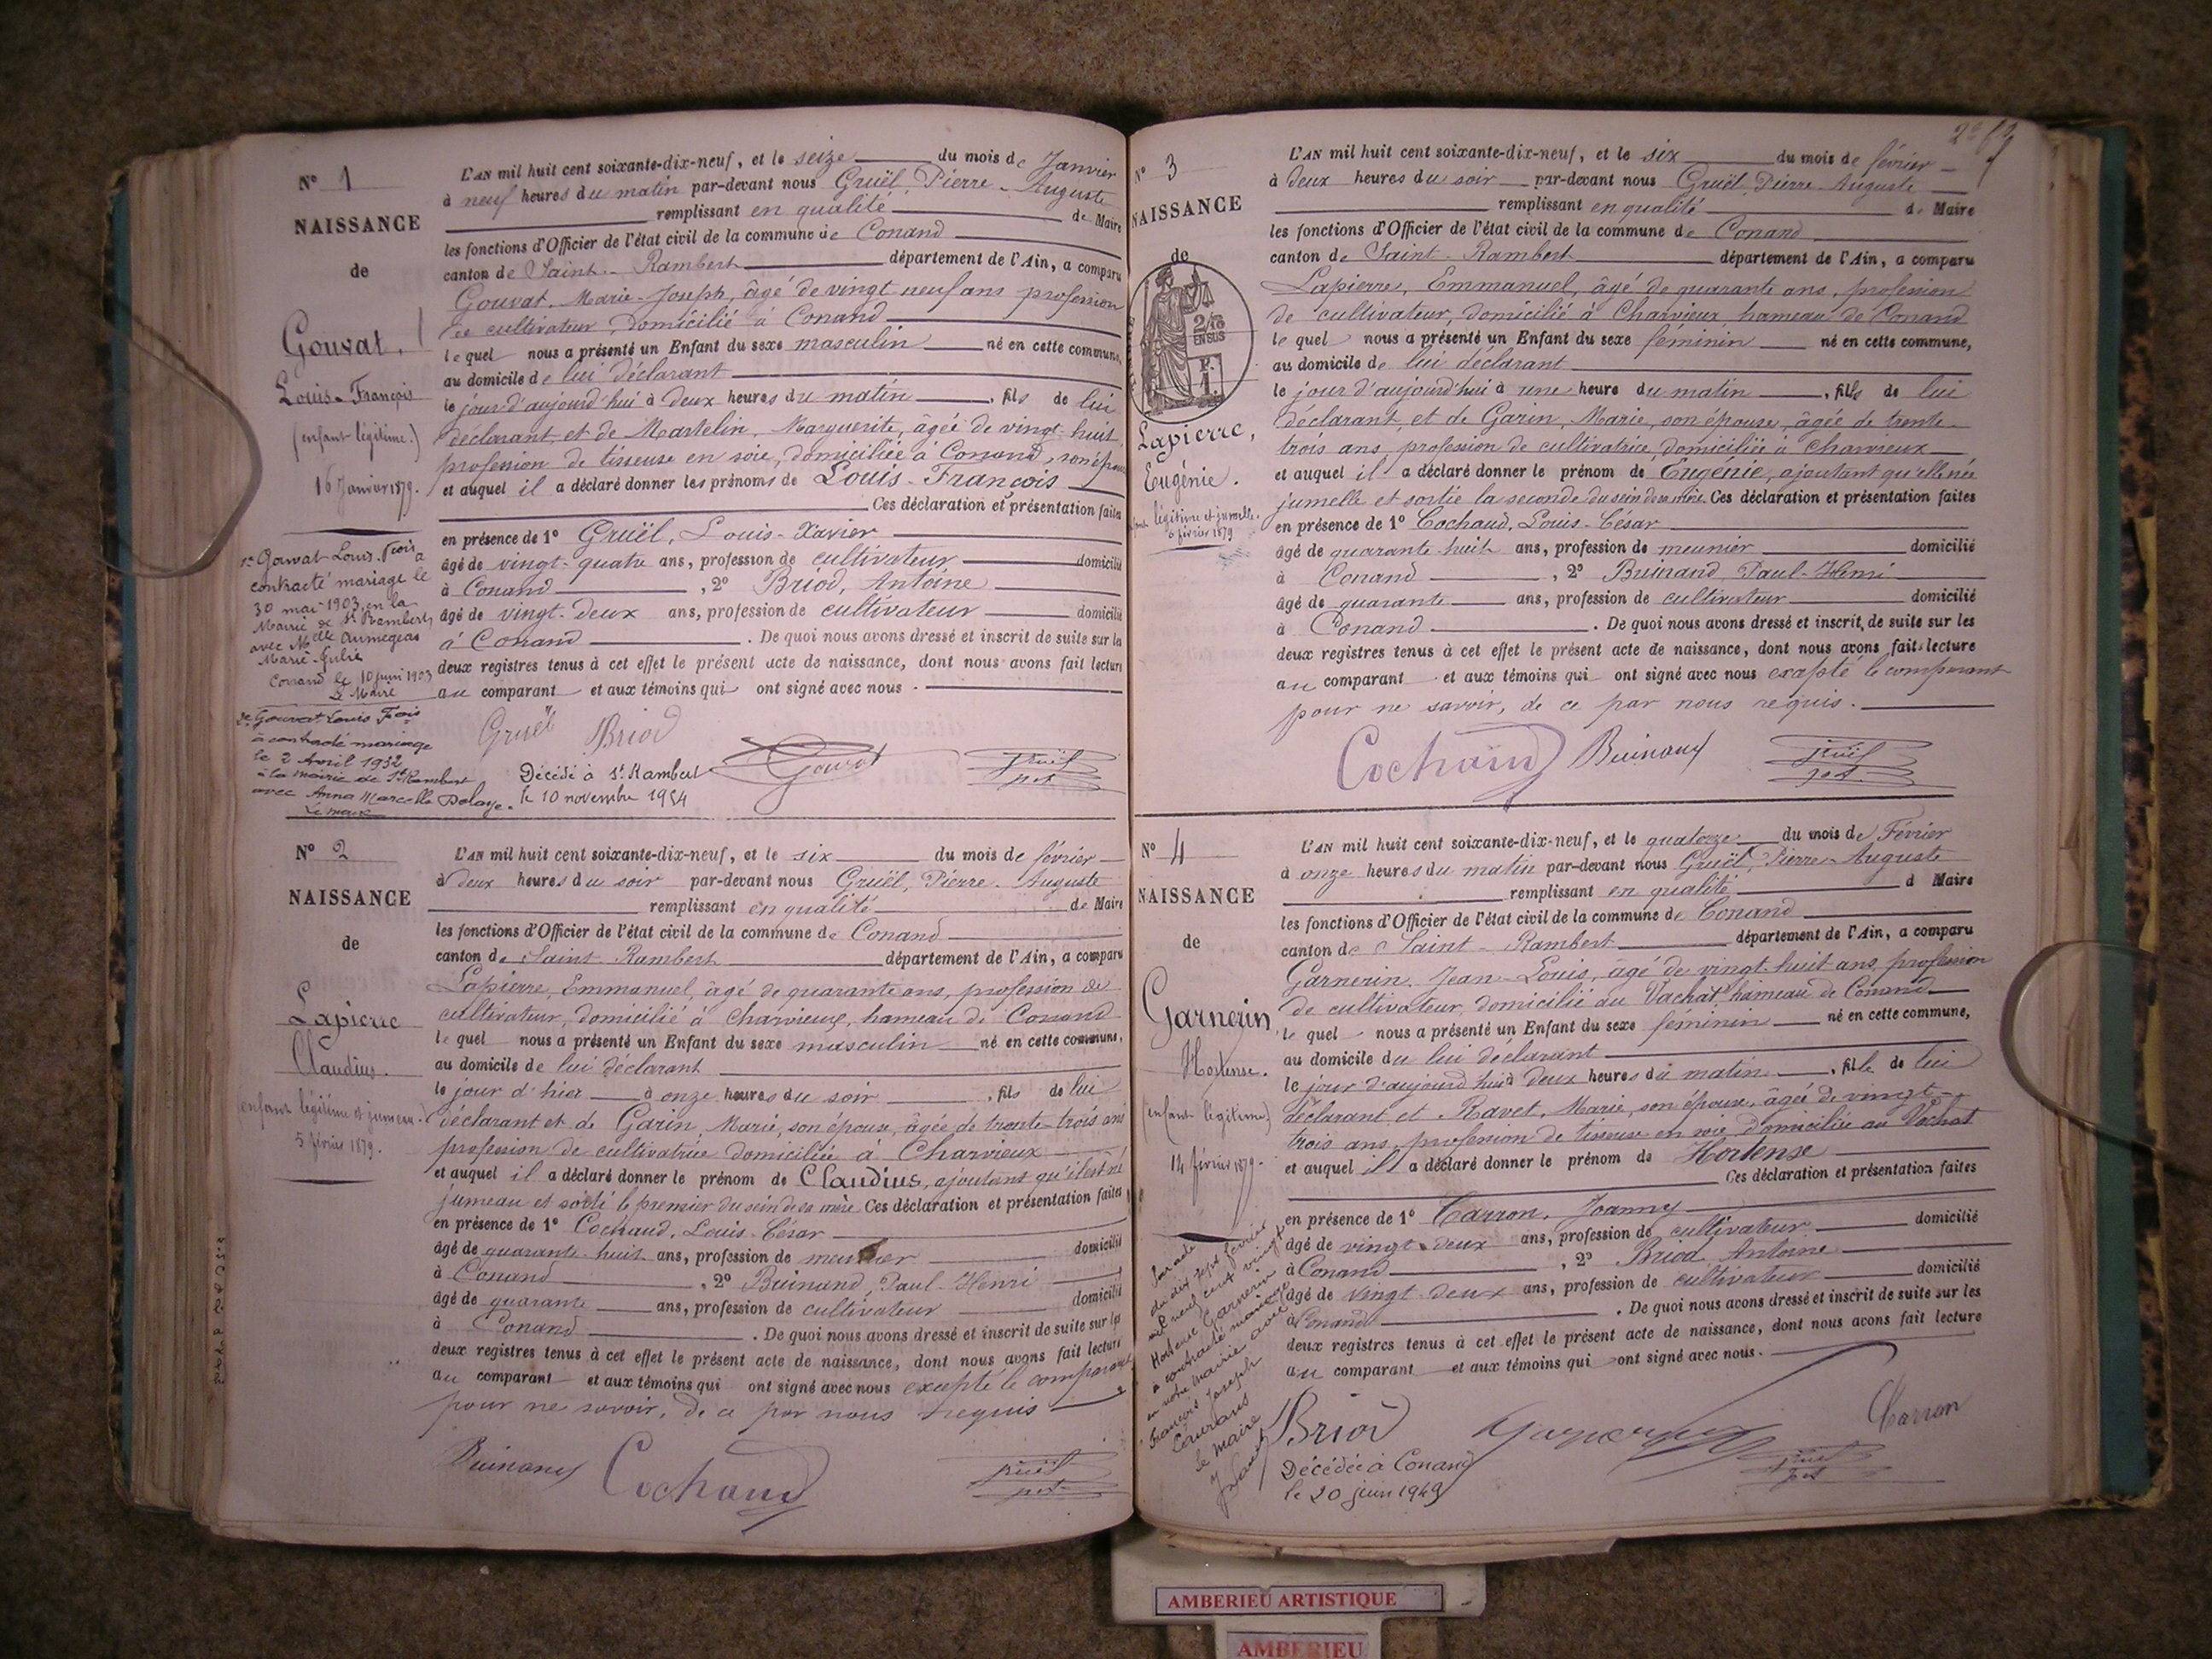 N° 1
NAISSANCE
de
Gouvat,
Louis-François
(enfant légitime.)
16 Janvier 1879.
1° Gouvat Louis-Fçois a
contracté mariage le
30 mai 1903 en la
Mairie de St Rambert,
avec Melle
Marie-Julie
Conand le 10 juin 1903
Le Maire
2° Gouvat Louis Fçois
a contracté mariage
le 2 Avril 1932
à la mairie de St Rambert
avec Anna Marcelle Delaye.
Le maire
L'AN mil huit cent soixante-dix-neuf, et le seize du mois de Janvier
à neuf heures du matin par-devant nous Gruël, Pierre-Auguste
remplissant en qualité de Maire
les fonctions d'Officier de l'état civil de la commune de Conand
canton de Saint-Rambert département de l'Ain, a comparu
Gouvat Marie-Joseph, âgé de vingt neuf ans profession
de cultivateur, domicilié à Conand
lequel nous a présenté un Enfant du sexe masculin né en cette commune,
au domicile de lui déclarant
le jour d'aujourd'hui à deux heures du matin, fils de lui
déclarant, et de Martelin, Marguerite, âgée de vingt huit,
profession de tisseuse en soie, domiciliée à Conand, son épouse
et auquel il a déclaré donner les prénoms de Louis-François
Ces déclaration et présentation faites
en présence de 1° Gruël, Louis-Xavier
âgé de vingt-quatre ans, profession de cultivateur domicilié
à Conand, 2° Briod, Antoine
âgé de vingt-deux ans, profession de cultivateur domicilié
à Conand. De quoi nous avons dressé et inscrit de suite sur les
deux registres tenus à cet effet le présent acte de naissance, dont nous avons fait lecture
au comparant et aux témoins qui ont signé avec nous.
Gruël Briod Gouvat Gruël
Décédé à St Rambert
le 10 novembre 1954
N° 2
NAISSANCE
de
Lapierre
Claudius.
(enfant légitime et jumeau.)
5 février 1879.
L'AN mil huit cent soixante-dix-neuf, et le six du mois de février
à deux heures du soir par-devant nous Gruël, Pierre-Auguste
remplissant en qualité de Maire
les fonctions d'Officier de l'état civil de la commune de Conand
canton de Saint-Rambert département de l'Ain, a comparu
Lapierre, Emmanuel, âgé de quarante ans, profession de
cultivateur, domicilié à Charvieux, hameau de Conand
lequel nous a présenté un Enfant du sexe masculin né en cette commune,
au domicile de lui déclarant
le jour d'hier à onze heures du soir, fils de lui
déclarant et de Garin, Marie, son épouse, âgée de trente-trois ans
profession de cultivatrice domiciliée à Charvieux
et auquel il a déclaré donner le prénom de Claudius, ajoutant qu'il est né
jumeau et sorti le premier du sein de sa mère Ces déclaration et présentation faites
en présence de 1° Cochaud, Louis-César
âgé de quarante-huit ans, profession de meunier domicilié
à Conand, 2° Buinand, Paul-Henri
âgé de quarante ans, profession de cultivateur domicilié
à Conand. De quoi nous avons dressé et inscrit de suite sur les
deux registres tenus à cet effet le présent acte de naissance, dont nous avons fait lecture
au comparant et aux témoins qui ont signé avec nous excepté le comparant
pour ne savoir, de ce par nous requis
Buinand Cochaud Gruël
N° 3
NAISSANCE
de
2/10
EN SUS
Lapierre,
Eugénie.
légitime et jumelle.
6 février 1879
L'AN mil huit cent soixante-dix-neuf, et le six du mois de février
à deux heures du soir par-devant nous Gruël, Pierre-Auguste
remplissant en qualité de Maire
les fonctions d'Officier de l'état civil de la commune de Conand
canton de Saint-Rambert département de l'Ain, a comparu
Lapierre, Emmanuel, âgé de quarante ans, profession
de cultivateur, domicilié à Charvieux hameau de Conand
lequel nous a présenté un Enfant du sexe féminin né en cette commune,
au domicile de lui déclarant
le jour d'aujourd'hui à une heure du matin, fille de lui
déclarant, et de Garin, Marie, son épouse, âgée de trente-
trois ans, profession de cultivatrice, domiciliée à Charvieux
et auquel il a déclaré donner le prénom de Eugénie, ajoutant qu'elle née
jumelle et sortie la seconde du sein de sa mère. Ces déclaration et présentation faites
en présence de 1° Cochaud, Louis-César
âgé de quarante-huit ans, profession de meunier domicilié
à Conand, 2° Buinand, Paul-Henri
âgé de quarante ans, profession de cultivateur domicilié
à Conand. De quoi nous avons dressé et inscrit de suite sur les
deux registres tenus à cet effet le présent acte de naissance, dont nous avons fait lecture
au comparant et aux témoins qui ont signé avec nous excepté le comparant
pour ne savoir, de ce par nous requis.
Cochaud Buinand Gruël
N° 4
NAISSANCE
de
Garnerin,
Hortense.
(enfant légitime)
14 février 1879.
Par acte
du dix sept février
mil neuf cent vingt
Hortense Garnerin
a contracté mariage
en notre mairie avec
François Joseph
Le Maire
L'AN mil huit cent soixante-dix-neuf, et le quatorze du mois de Février
à onze heures du matin par-devant nous Gruël, Pierre-Auguste
remplissant en qualité d Maire
les fonctions d'Officier de l'état civil de la commune de Conand
canton de Saint-Rambert département de l'Ain, a comparu
Garnerin, Jean-Louis, âgé de vingt-huit ans, profession
de cultivateur, domicilié au Vachat hameau de Conand
lequel nous a présenté un Enfant du sexe féminin né en cette commune,
au domicile du lui déclarant
le jour d'aujourd'hui à deux heures du matin, fille de lui
déclarant et Ravet, Marie, son épouse, âgée de vingt-
trois ans, profession de tisseuse en soie domiciliée au Vachat
et auquel il a déclaré donner le prénom de Hortense
Ces déclaration et présentation faites
en présence de 1° Carron, Joanny
âgé de vingt-deux ans, profession de cultivateur domicilié
à Conand, 2° Briod Antoine
âgé de vingt-deux ans, profession de cultivateur domicilié
à Conand. De quoi nous avons dressé et inscrit de suite sur les
deux registres tenus à cet effet le présent acte de naissance, dont nous avons fait lecture
au comparant et aux témoins qui ont signé avec nous.
Briod Garnerin Carron
Gruël
Décédée à Conand
le 20 juin 1949
AMBERIEU ARTISTIQUE
AMBERIEU